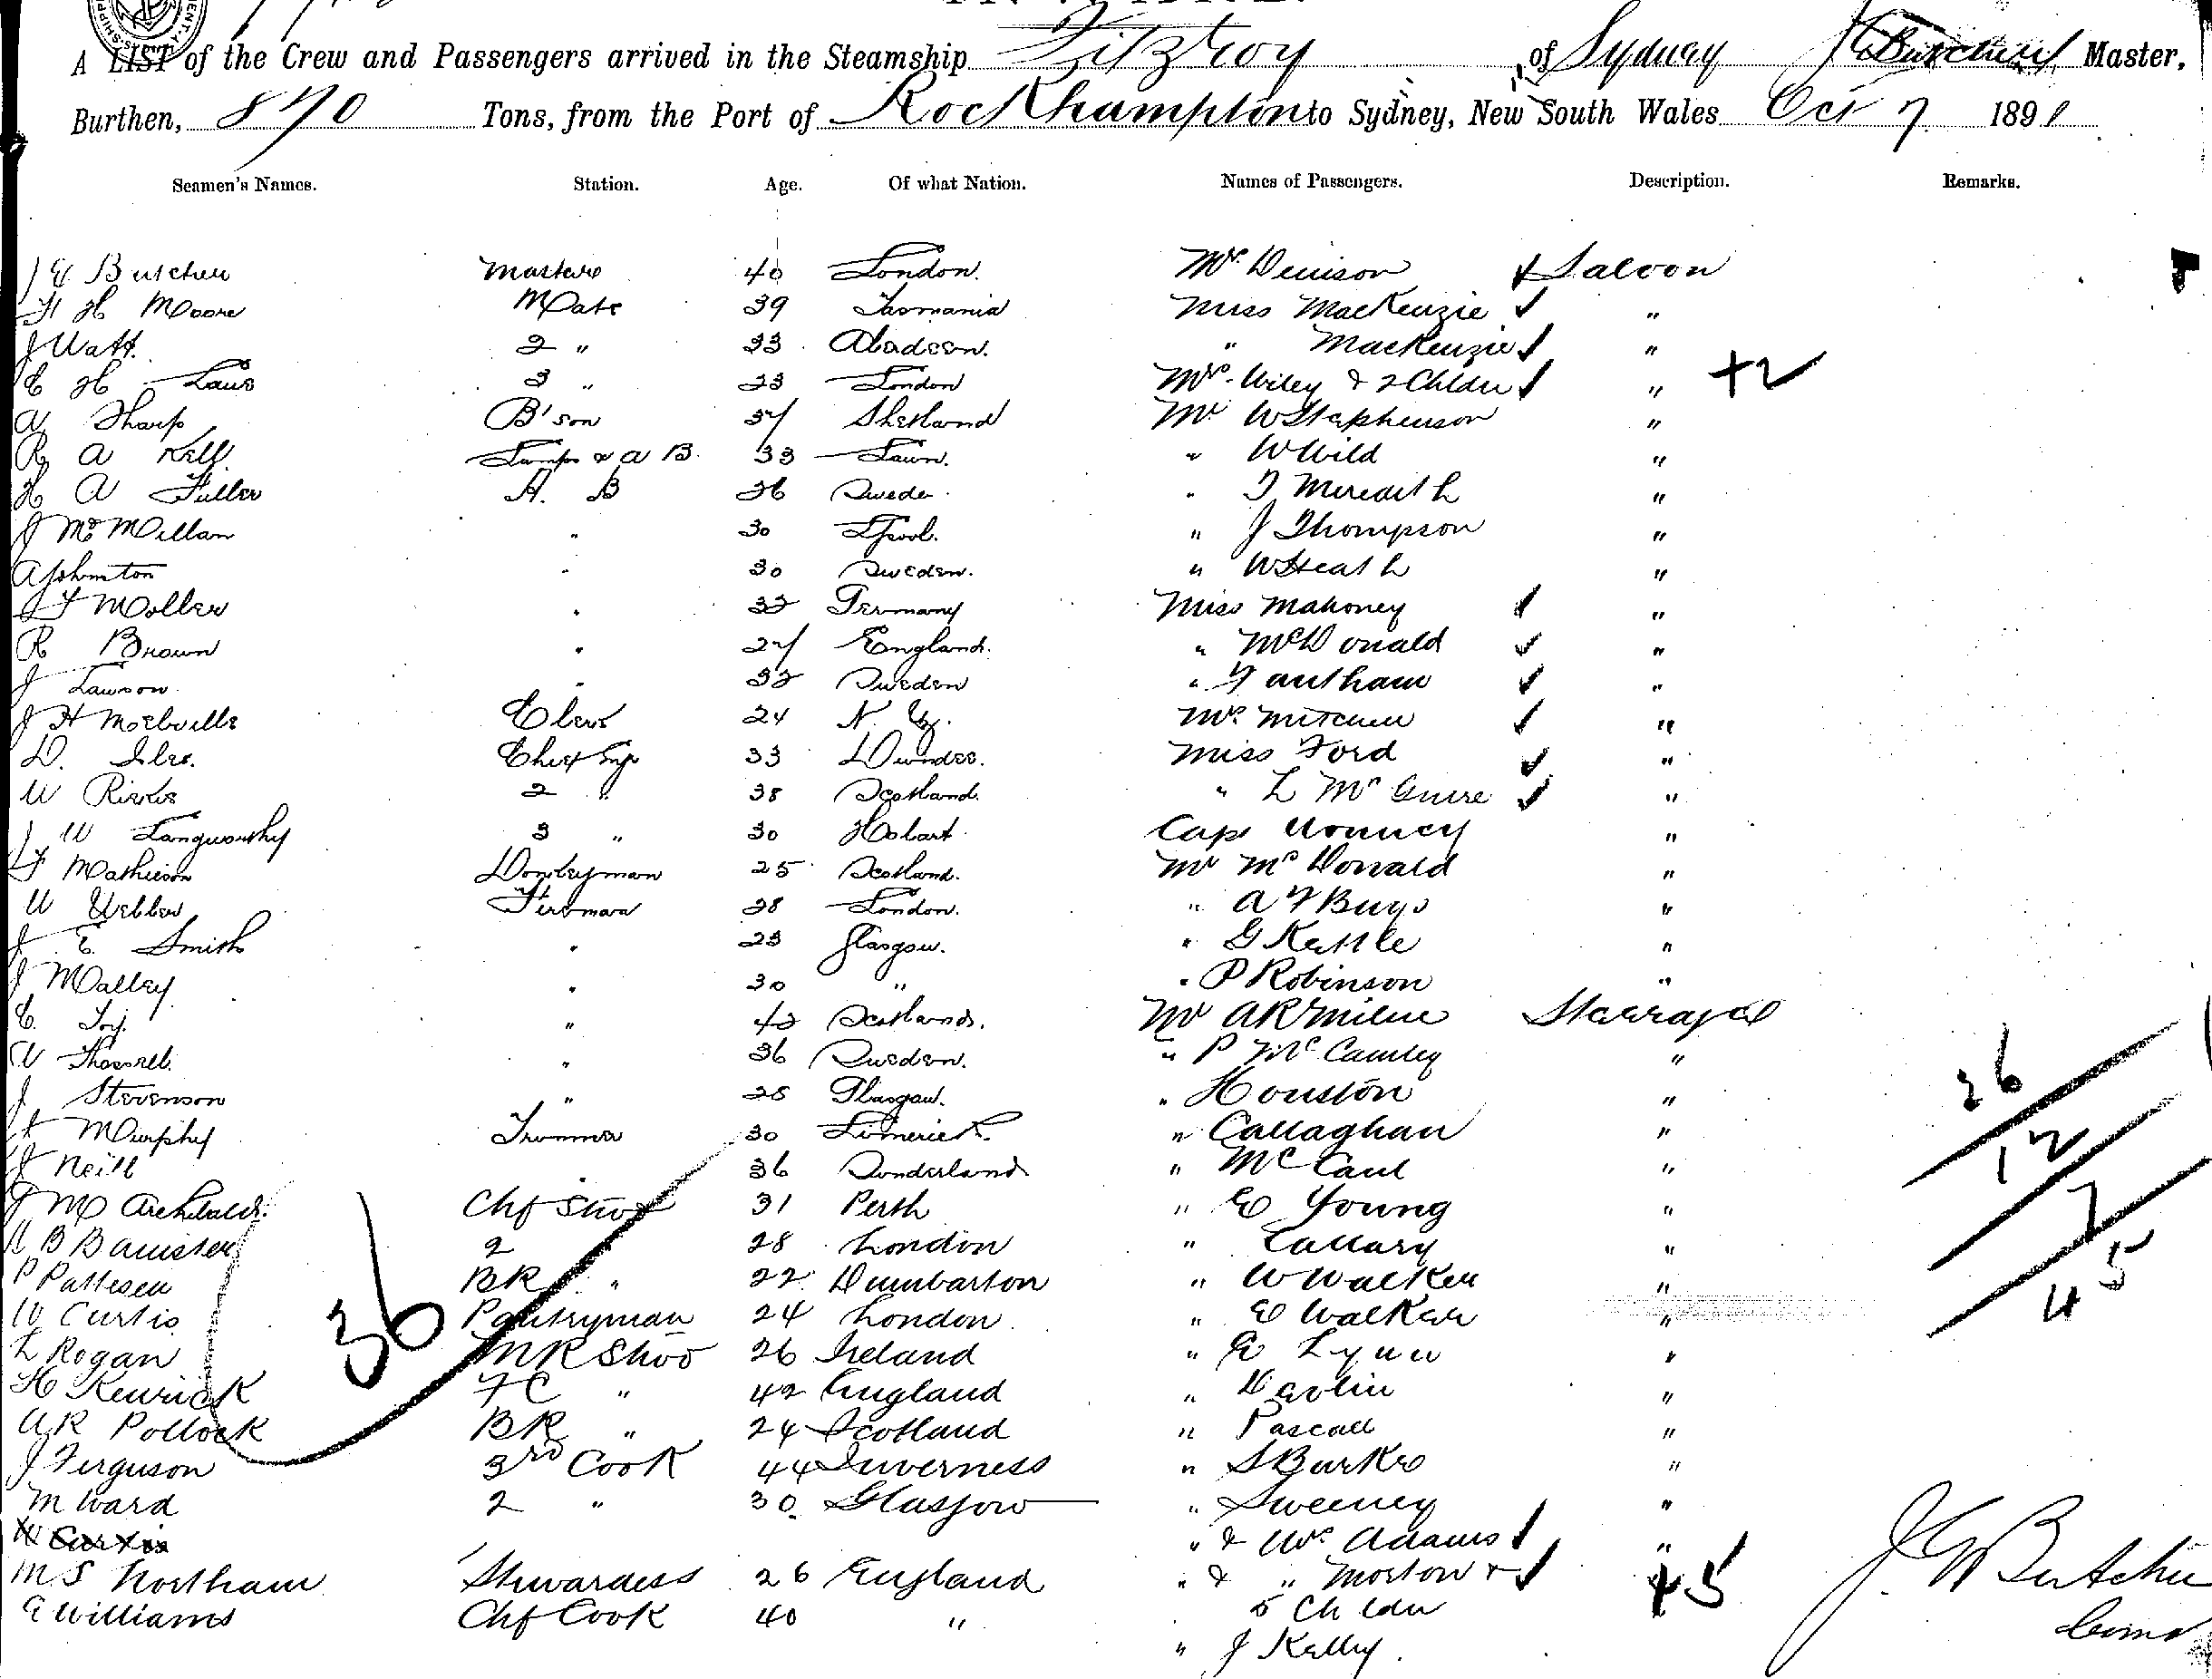 A LIST of the Crew and Passengers arrived in the Steamship Fitzroy of Sydney Master,
Burthen, 870 Tons, from the Port of Rockhampton to Sydney, New South Wales Oct 7 1891
Seamen's Names. Station. Age. Of what Nation. Names of Passengers. Description. Remarks.
J G Butcher Master 40 London. Mr. Denison Saloon
H Moore Mate 39 Tasmania Miss MacKenzie "
J Watt. 2 " 33 Abadeen. " MacKenzie "
C H Laws 3 " 23 London Mrs. Wiley & 2 Childn " +2
A Sharp B'son 37 Shetland Mr W Stephenson "
R A Kell Lamps & A B. 33 " W Wild "
H A Fuller A. B 26 Swede " T Meredith "
J McMillan " 30 Lpool. " J Thompson "
A Johnston " 30 Sweden. " W Heath "
Moller " 32 Germany Miss Mahoney "
R Brown " 27 England. " McDonald "
J Lawson " 32 Sweden " "
J H 24 N. Z. Mrs. Mitchell "
D. Isles. Chief Eng 33 Dundee. Miss Ford "
W 2 " 38 Scotland. " L McGuire "
J W Langworthy 3 " 30 Hobart Cap "
Mathieson Donkeyman 25 Scotland. Mr McDonald "
W Webber Fireman 28 London. " A F Buys "
J. E. Smith " 23 Glasgow. " G Kettle "
J Malley " 30 " " P Robinson "
C. Toy. " 42 Scotland. Mr A R Milne Steerage
" 36 Sweden. " P McCauley "
J Stevenson " 25 Glasgow. " Houston "
Murphy Trimmer 30 Limerick. " Callaghan "
J Neill 36 Sunderland " McCaul "
J M Archibald. Chf Stwd 31 Perth " E Young "
B Banister 2 28 London " Callary "
P Pattesen BR " 22 Dumbarton " W Walker "
W Curtis Pantryman 24 London " E Walker "
L Rogan MR Stwd 26 Ireland " E Lynn "
H Kenrick FC " 42 England " Devlin "
A R Pollock BR " 24 Scotland " Pascall "
J Ferguson 3rd Cook 44 Inverness " S Burke "
M Ward 2 " 30 Glasgow " Sweeney "
W Curtis " & Mrs Adams "
M S Northam Stewardess 26 England " & " Morton & +5
E Williams Chf Cook 40 " 5 Childn
" J Kelly.
36
26
12
7
45
J G Butcher